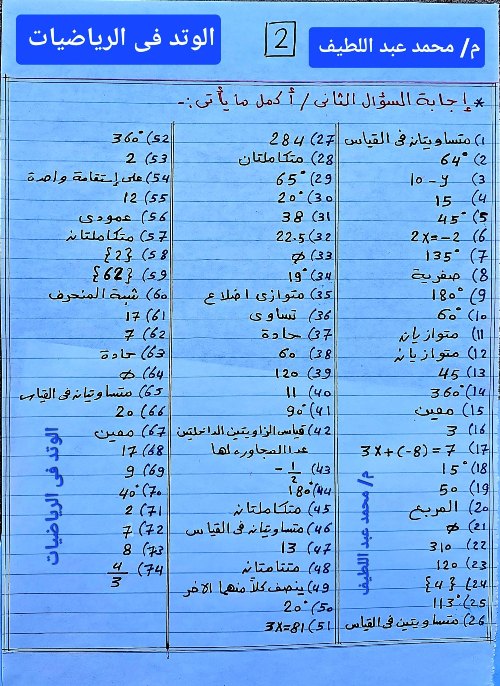 الوتد فى الرياضيات
2
م/ محمد عبد اللطيف
* إجابة السؤال الثانى / أكمل ما يأتى :-
1) متساويتان فى القياس
2) 64°
3) 10 - y
4) 15
5) 45°
6) 2x = -2
7) 135°
8) صفرية
9) 180°
10) 60°
11) متوازيان
12) متوازيان
13) 45
14) 360°
15) معين
16) 3
17) 3x + (-8) = 7
18) 15°
19) 50
20) المربع
21) ∅
22) 310
23) 120
24) {4}
25) 113°
26) متساويتين فى القياس
27) 284
28) متكاملتان
29) 65°
30) 20°
31) 38
32) 22.5
33) ∅
34) 19°
35) متوازى اضلاع
36) تساوى
37) حادة
38) 60
39) 120
40) 11
41) 90°
42) قياس الزاويتين الداخلتين
عدا المجاورة لها
43) - 1/2
44) 180°
45) متكاملتان
46) متساويتان فى القياس
47) 13
48) متتامتان
49) ينصف كلاً منهما الآخر
50) 20°
51) 3x = 81
52) 360°
53) 2
54) على إستقامة واحدة
55) 12
56) عمودى
57) متكاملتان
58) {2}
59) {62}
60) شبة المنحرف
61) 17
62) 7
63) حادة
64) ∅
65) متساويتان فى القياس
66) 20
67) معين
68) 17
69) 9
70) 40°
71) 2
72) 7
73) 8
74) 4/3
م/ محمد عبد اللطيف
الوتد فى الرياضيات